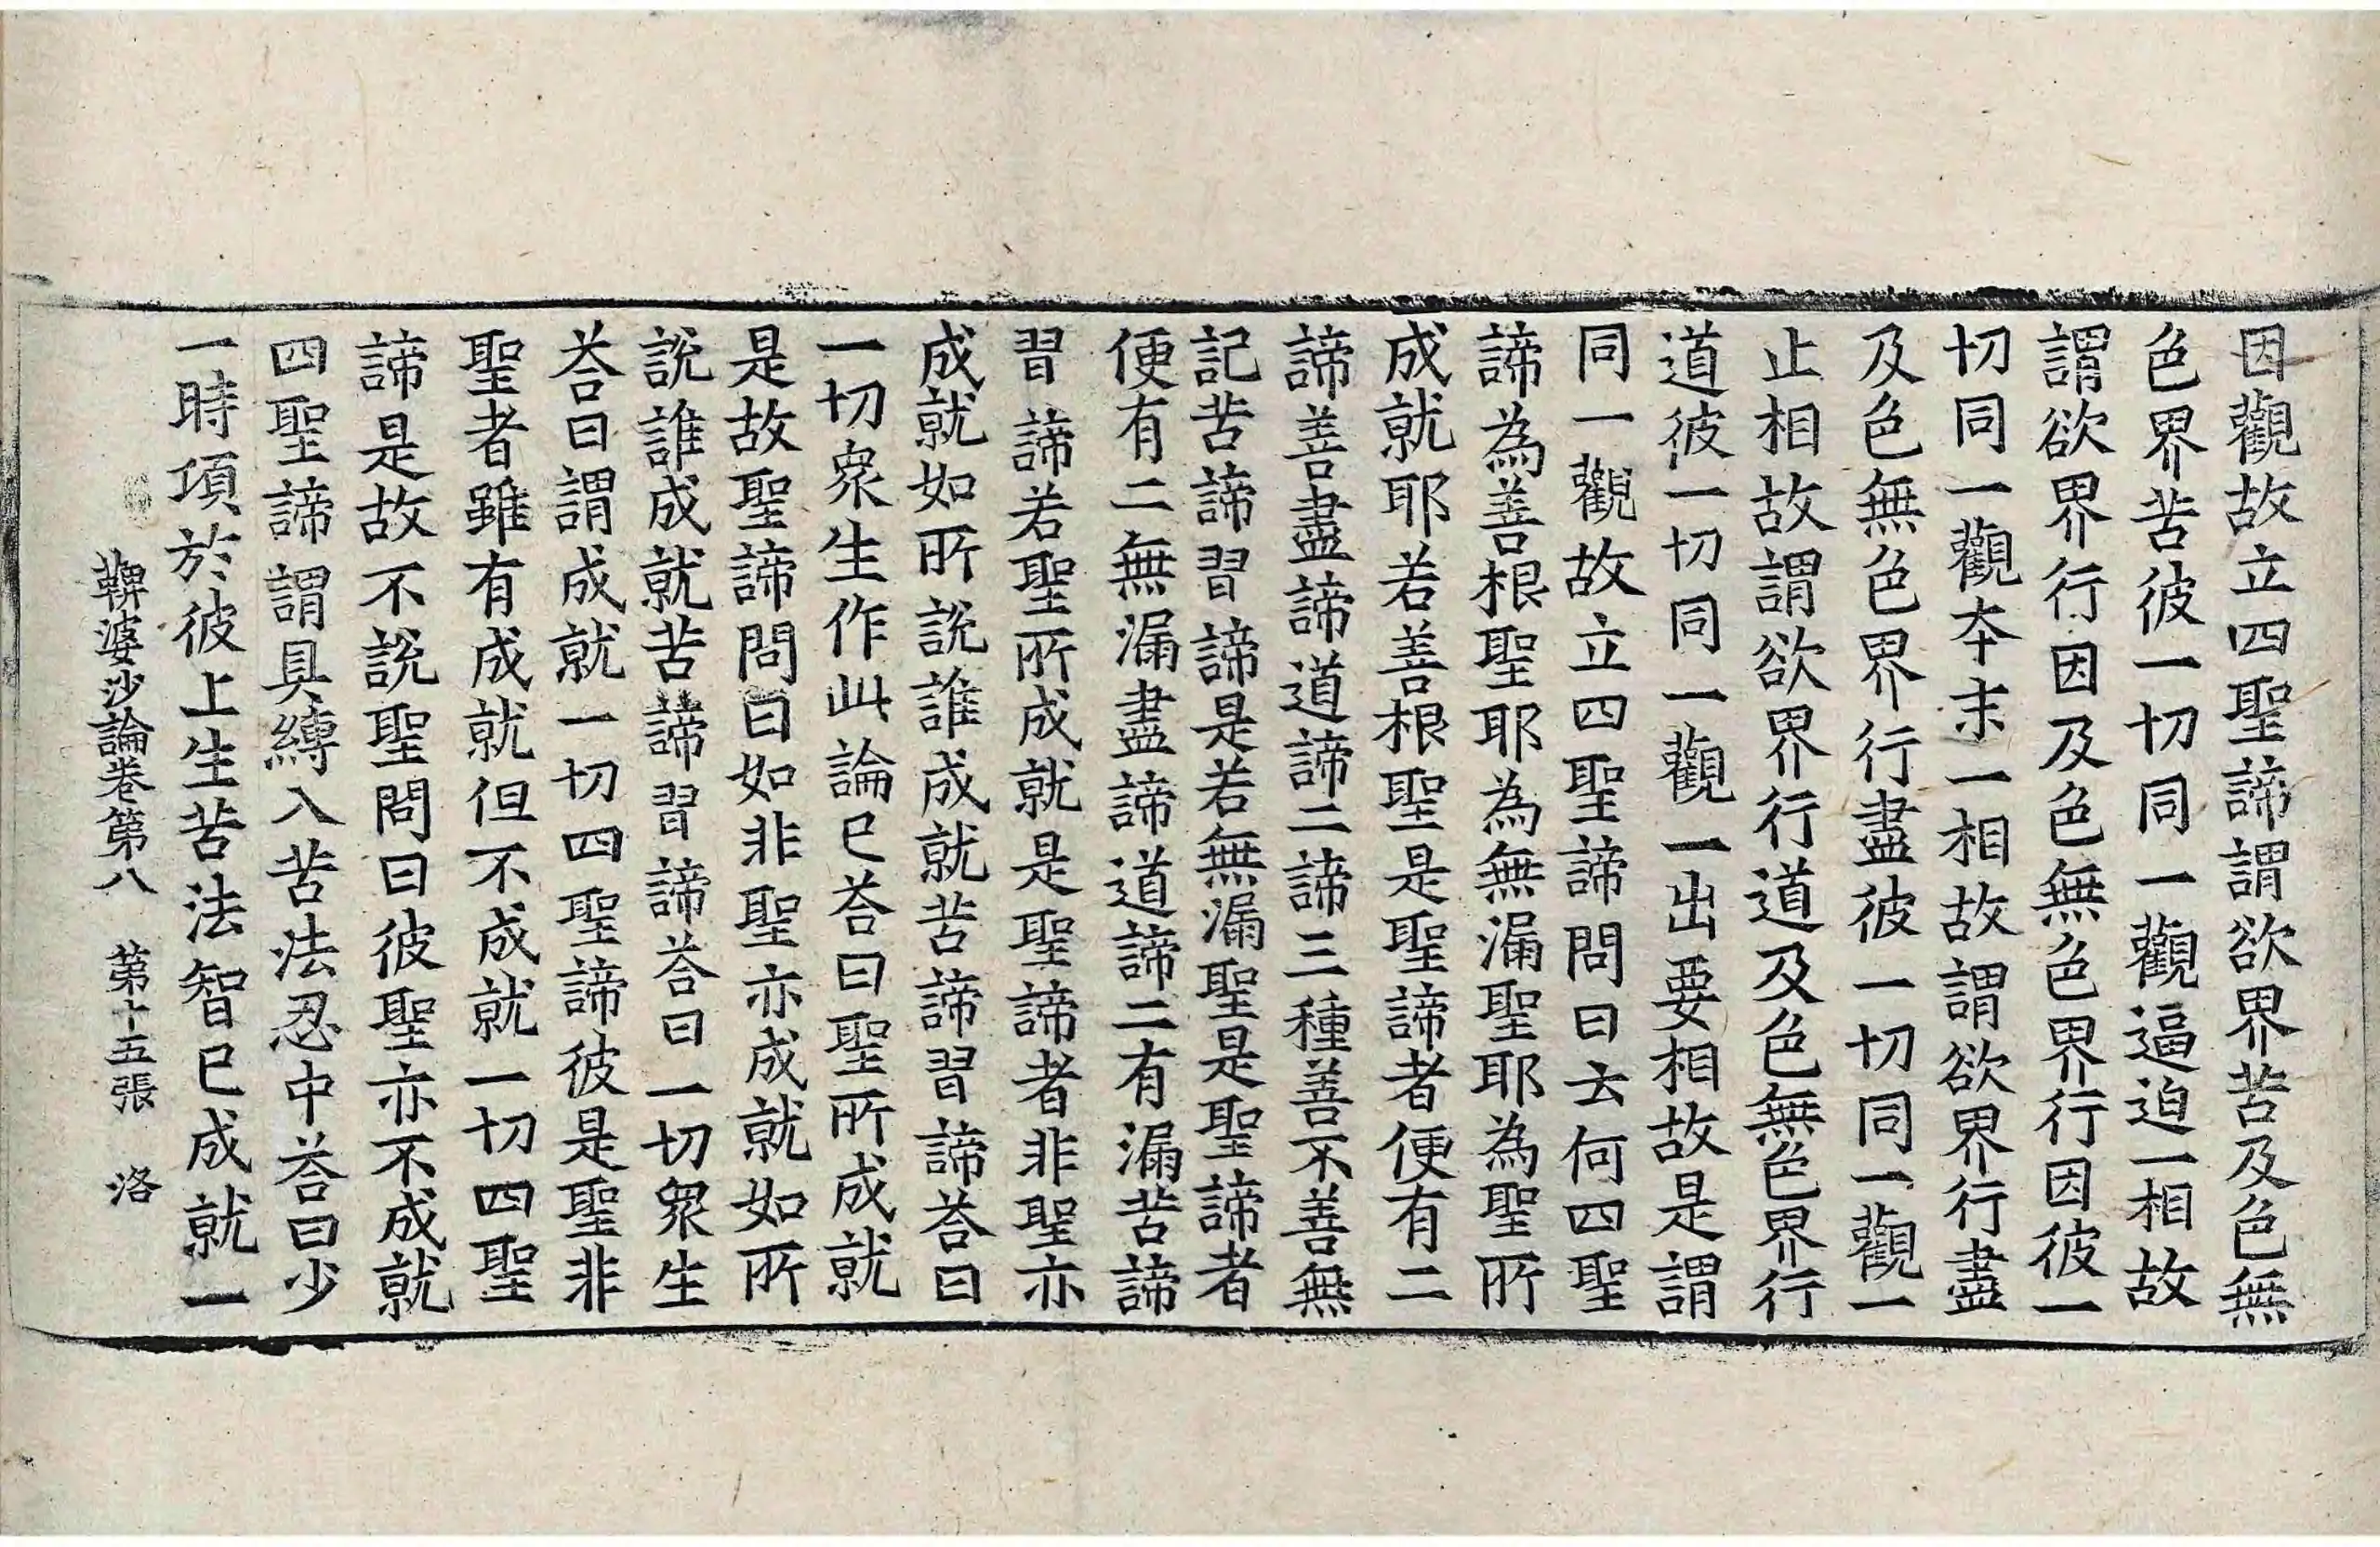 因觀故立四聖諦謂欲界苦及色無
色界苦彼一切同一觀逼迫一相故
謂欲界行因及色無色界行因彼一
切同一觀夲末一相故謂欲界行盡
及色無色界行盡彼一切同一觀一
止相故謂欲界行道及色無色界行
道彼一切同一觀一出要相故是謂
同一觀故立四聖諦問曰云何四聖
諦為善根聖耶為無漏聖耶為聖所
成就耶若善根聖是聖諦者便有二
諦善盡諦道諦二諦三種善不善無
記苦諦習諦是若無漏聖是聖諦者
便有二無漏盡諦道諦二有漏苦諦
習諦若聖所成就是聖諦者非聖亦
成就如所說誰成就苦諦習諦荅曰
一切衆生作此論已荅曰聖所成就
是故聖諦問曰如非聖亦成就如所
說誰成就苦諦習諦荅曰一切衆生
荅曰謂成就一切四聖諦彼是聖非
聖者雖有成就但不成就一切四聖
諦是故不說聖問曰彼聖亦不成就
四聖諦謂具縛入苦法忍中荅曰少
一時項於彼上生苦法智已成就一
鞞婆沙論卷第八　第十五張　洛